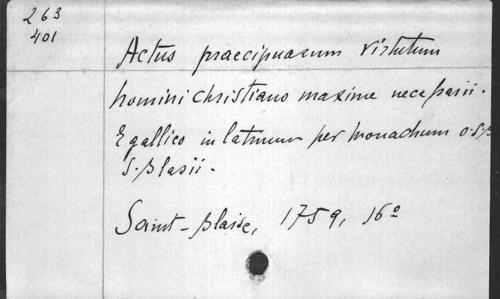 263
401
Actus praecipuarum virtutum
homini christiano maxime necessarii.
E gallico in latinum per monachum O.S.B
S. Blasii.
Saint-Blaise, 1759, 16º